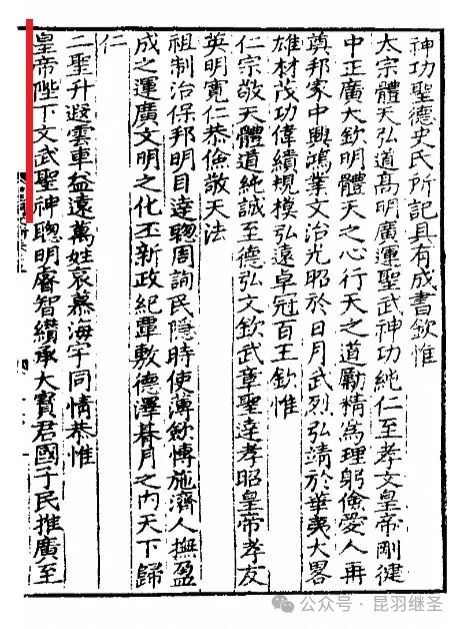 神功聖德史氏所記具有成書欽惟
太宗體天弘道髙明廣運聖武神功純仁至孝文皇帝剛健
中正廣大欽明體天之心行天之道勵精為理躬儉愛人再
奠邦家中興鴻業文治光昭於日月武烈弘靖於華夷大畧
雄材茂功偉績規模弘遠卓冠百王欽惟
仁宗敬天體道純誠至德弘文欽武章聖達孝昭皇帝孝友
英明寬仁恭儉敬天法
祖制治保邦明目達聰周詢民隱時使薄斂慱施濟人撫盈
成之運廣文明之化丕新政紀覃敷德澤朞月之内天下歸
仁
二聖升遐雲車益遠萬姓哀慕海宇同情恭惟
皇帝陛下文武聖神聰明睿智纘承大寶君國子民推廣至
公众号 · 昆羽继圣